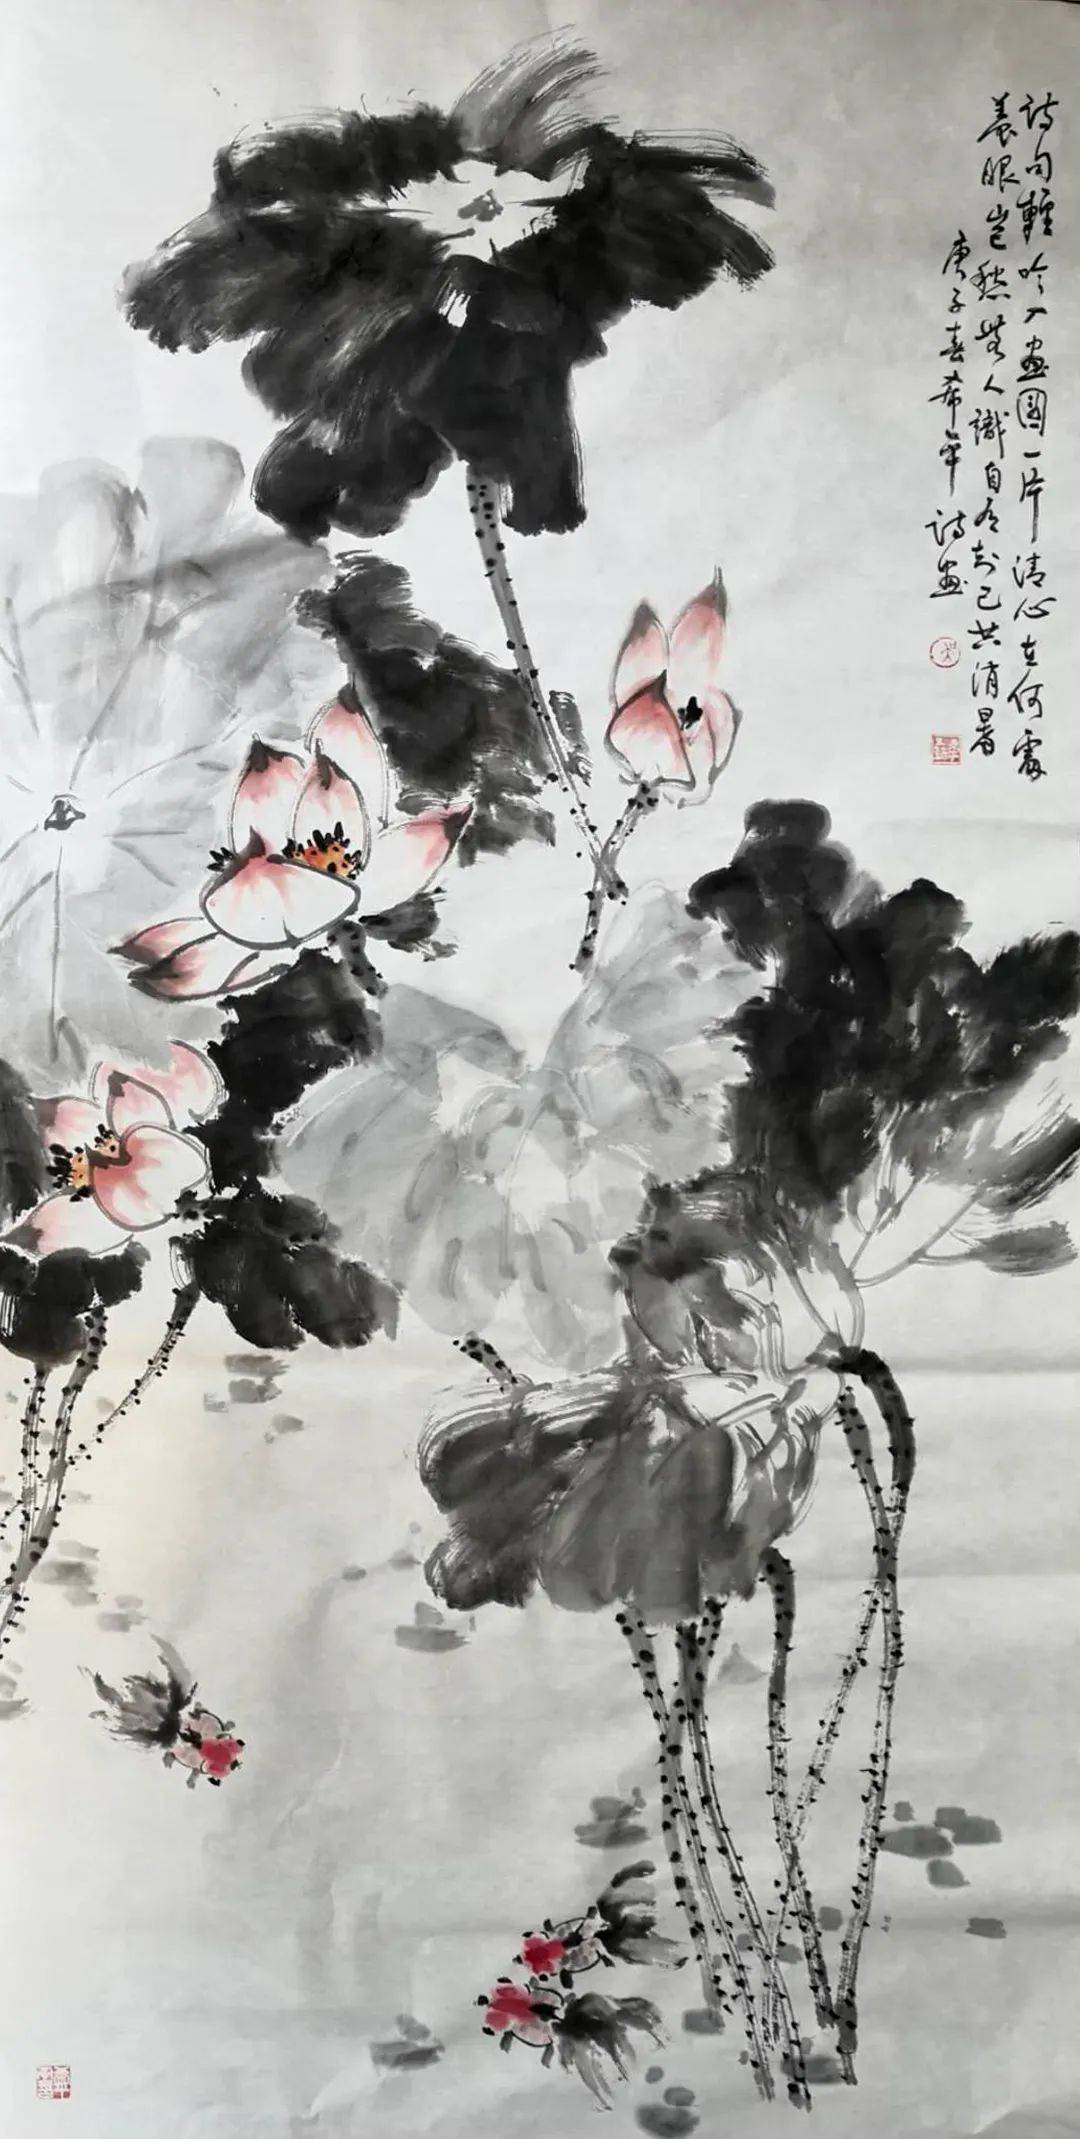 詩句輕吟入畫圖一片清心在何處
養眼豈愁無人識自有知己共消暑
庚子春希平詩畫